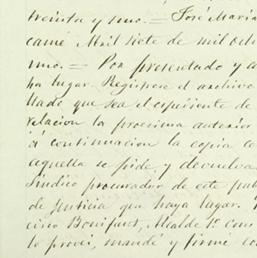 treinta y uno. = José María
came Abril siete de mil och
uno. = Por presentado y a
ha lugar. Registrese el archivo
llado que sea el espediente de
relacion la procsima anterior
á continuacion la copia co
aquella se pide y devuelva
Síndico procurador de este pu
de Justicia que haya lugar.
cisco Bonifant, Alcalde 1º Cons
lo proveí, mandé y firmé co